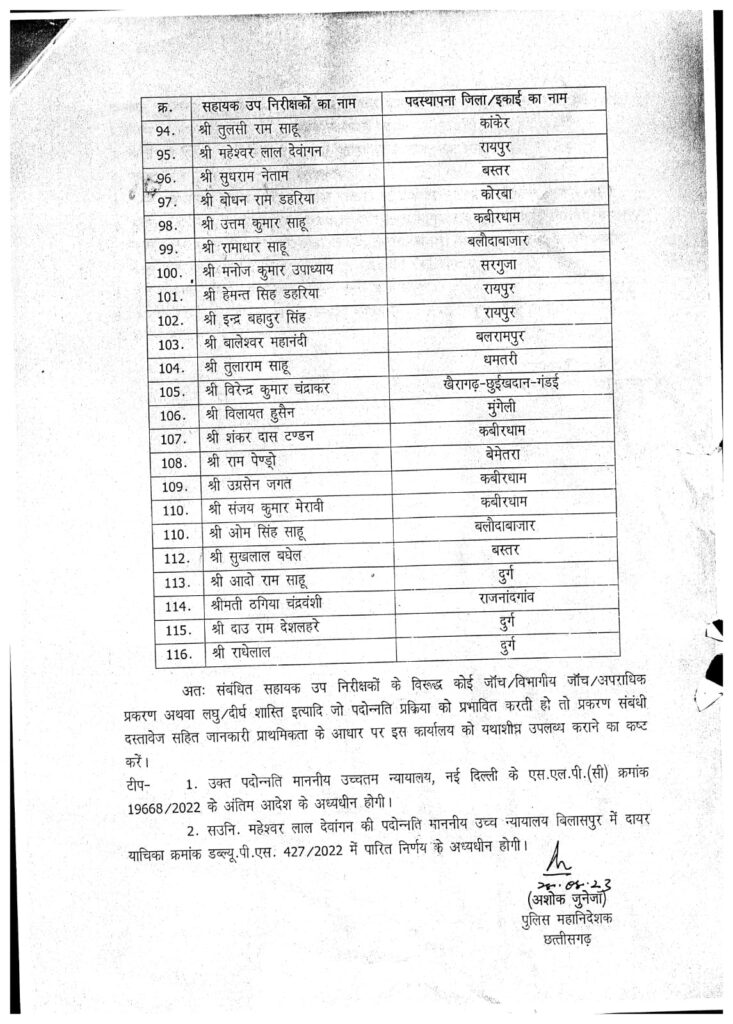 क्र. सहायक उप निरीक्षकों का नाम पदस्थापना जिला/इकाई का नाम
94. श्री तुलसी राम साहू कांकेर
95. श्री महेश्वर लाल देवांगन रायपुर
96. श्री सुधराम नेताम बस्तर
97. श्री बोधन राम डहरिया कोरबा
98. श्री उत्तम कुमार साहू कबीरधाम
99. श्री रामाधार साहू बलौदाबाजार
100. श्री मनोज कुमार उपाध्याय सरगुजा
101. श्री हेमन्त सिह डहरिया रायपुर
102. श्री इन्द्र बहादुर सिंह रायपुर
103. श्री बालेश्वर महानंदी बलरामपुर
104. श्री तुलाराम साहू धमतरी
105. श्री विरेन्द्र कुमार चंद्राकर खैरागढ़-छुईखदान-गंडई
106. श्री विलायत हुसैन मुंगेली
107. श्री शंकर दास टण्डन कबीरधाम
108. श्री राम पेण्ड्रो बेमेतरा
109. श्री उग्रसेन जगत कबीरधाम
110. श्री संजय कुमार मेरावी कबीरधाम
110. श्री ओम सिंह साहू बलौदाबाजार
112. श्री सुखलाल बघेल बस्तर
113. श्री आदो राम साहू दुर्ग
114. श्रीमती ठगिया चंद्रवंशी राजनांदगांव
115. श्री दाउ राम देशलहरे दुर्ग
116. श्री राधेलाल दुर्ग
अतः संबंधित सहायक उप निरीक्षकों के विरूद्ध कोई जॉच/विभागीय जॉच/अपराधिक
प्रकरण अथवा लघु/दीर्घ शास्ति इत्यादि जो पदोन्नति प्रक्रिया को प्रभावित करती हो तो प्रकरण संबंधी
दस्तावेज सहित जानकारी प्राथमिकता के आधार पर इस कार्यालय को यथाशीघ्र उपलब्ध कराने का कष्ट
करें।
टीप- 1. उक्त पदोन्नति माननीय उच्चतम न्यायालय, नई दिल्ली के एस.एल.पी.(सी) क्रमांक
19668/2022 के अंतिम आदेश के अध्यधीन होगी।
2. सउनि. महेश्वर लाल देवांगन की पदोन्नति माननीय उच्च न्यायालय बिलासपुर में दायर
याचिका क्रमांक डब्ल्यू.पी.एस. 427/2022 में पारित निर्णय के अध्यधीन होगी।
(अशोक जुनेजा)
पुलिस महानिदेशक
छत्तीसगढ़